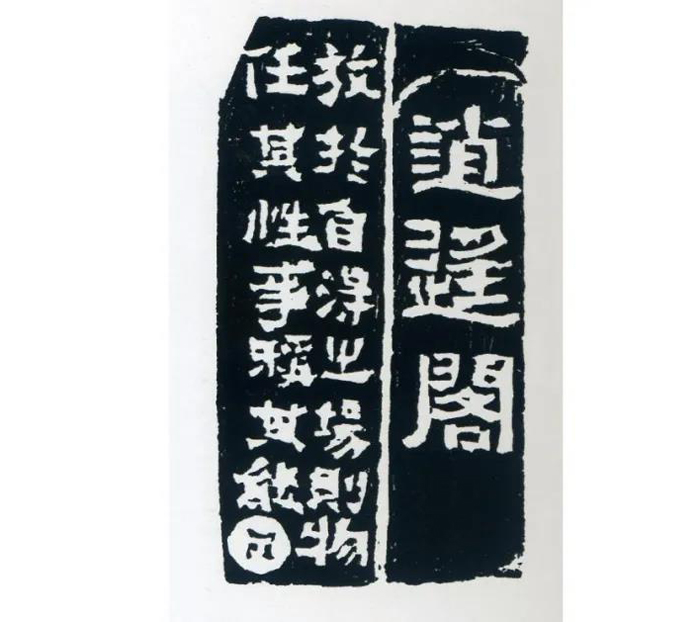 逍遥閣
放於自得之場則物
任其性事稱其能